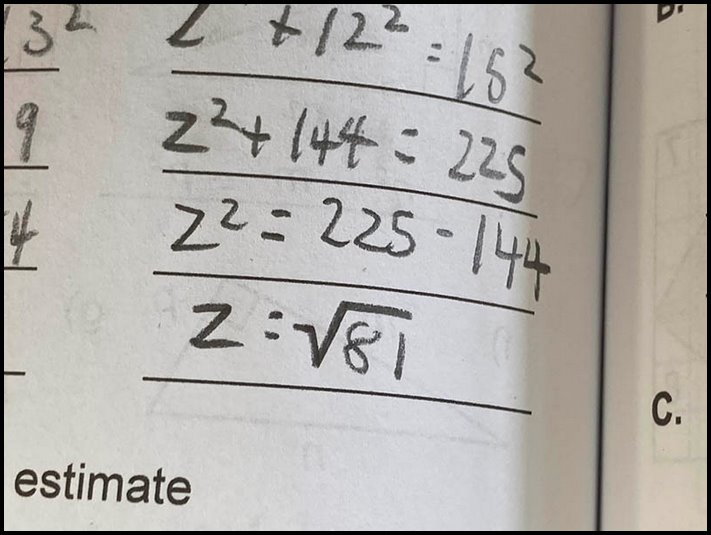 13²
z² + 12² = 15²
9
z² + 144 = 225
4
z² = 225 - 144
z = √81
estimate
C.